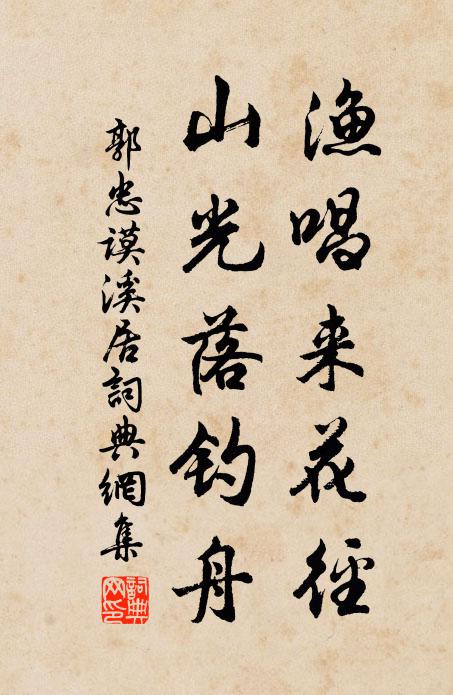 渔唱来花徑
山光落钓舟
郭忠謨溪居詞典網集
詞典网印